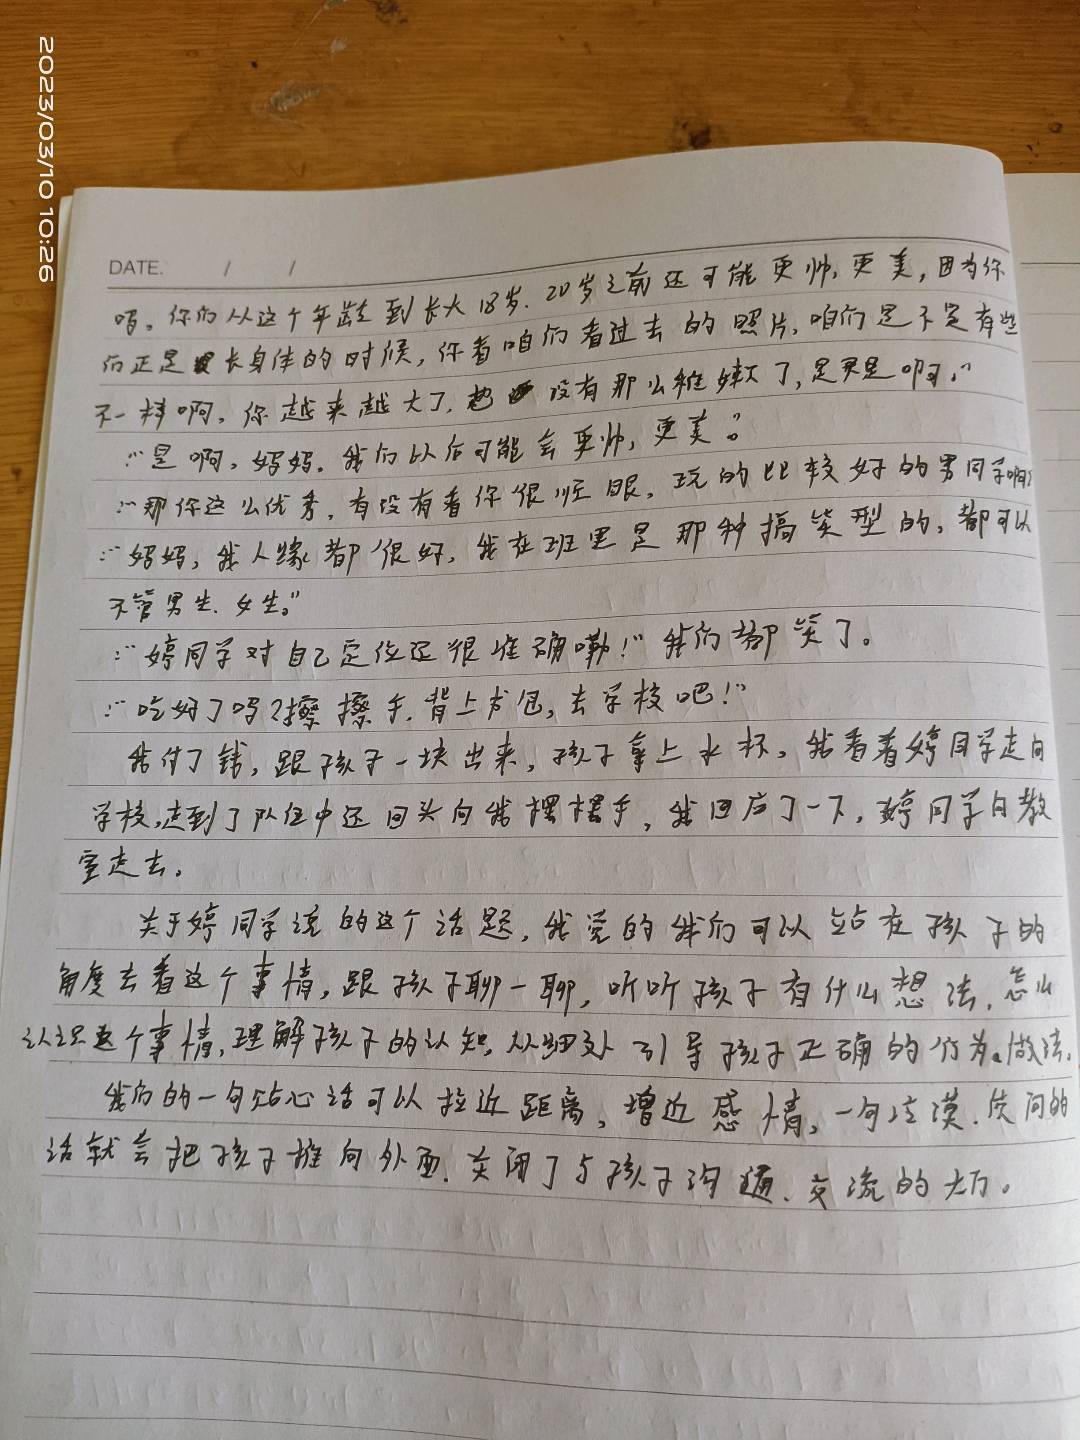 2023/03/10 10:26
DATE. / /
吗。你们从这个年龄到长大18岁、20岁之前还可能更帅,更美,因为你
们正是长身体的时候,你看咱们看过去的照片,咱们是不是有些
不一样啊,你越来越大了,没有那么稚嫩了,是不是啊。"
:"是啊,妈妈。我们以后可能会更帅,更美。"
:"那你这么优秀,有没有看你很顺眼,玩的比较好的男同学啊?
:"妈妈,我人缘都很好,我在班里是那种搞笑型的,都可以
不管男生、女生。"
:"婷同学对自己定位还很准确嘞!"我们都笑了。
:"吃好了吗?擦擦手,背上书包,去学校吧!"
我付了钱,跟孩子一块出来,孩子拿上水杯,我看着婷同学走向
学校,走到了队伍中还回头向我摆摆手,我回应了一下,婷同学向教
室走去。
关于婷同学说的这个话题,我觉的我们可以站在孩子的
角度去看这个事情,跟孩子聊一聊,听听孩子有什么想法,怎么
认识这个事情,理解孩子的认知,从细处引导孩子正确的行为、做法。
我们的一句贴心话可以拉近距离,增近感情,一句冷漠、质问的
话就会把孩子推向外面,关闭了与孩子沟通、交流的大门。